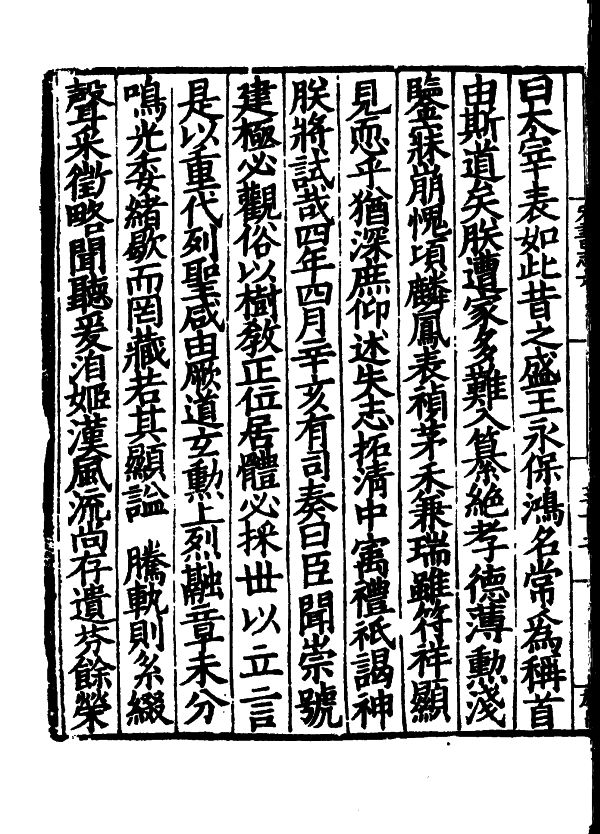 曰太宰表如此昔之盛王永保鴻名常為稱首
由斯道矣朕遭家多難入纂絶孝德薄勳淺
鑒寐崩愧頃麟鳳表禎茅禾兼瑞雖符祥顯
見恧乎猶深庶仰述失志拓清中㝢禮祇謁神
朕將試哉四年四月辛亥有司奏曰臣聞崇號
建極必觀俗以樹敎正位居體必採丗以立言
是以重代列聖咸由厥道玄勳上烈融章未分
鳴光委緒歇而罔藏若其顯謚騰軌則系綴
聲采徵略聞聽爰洎姬漢風流尚存遺芬餘榮